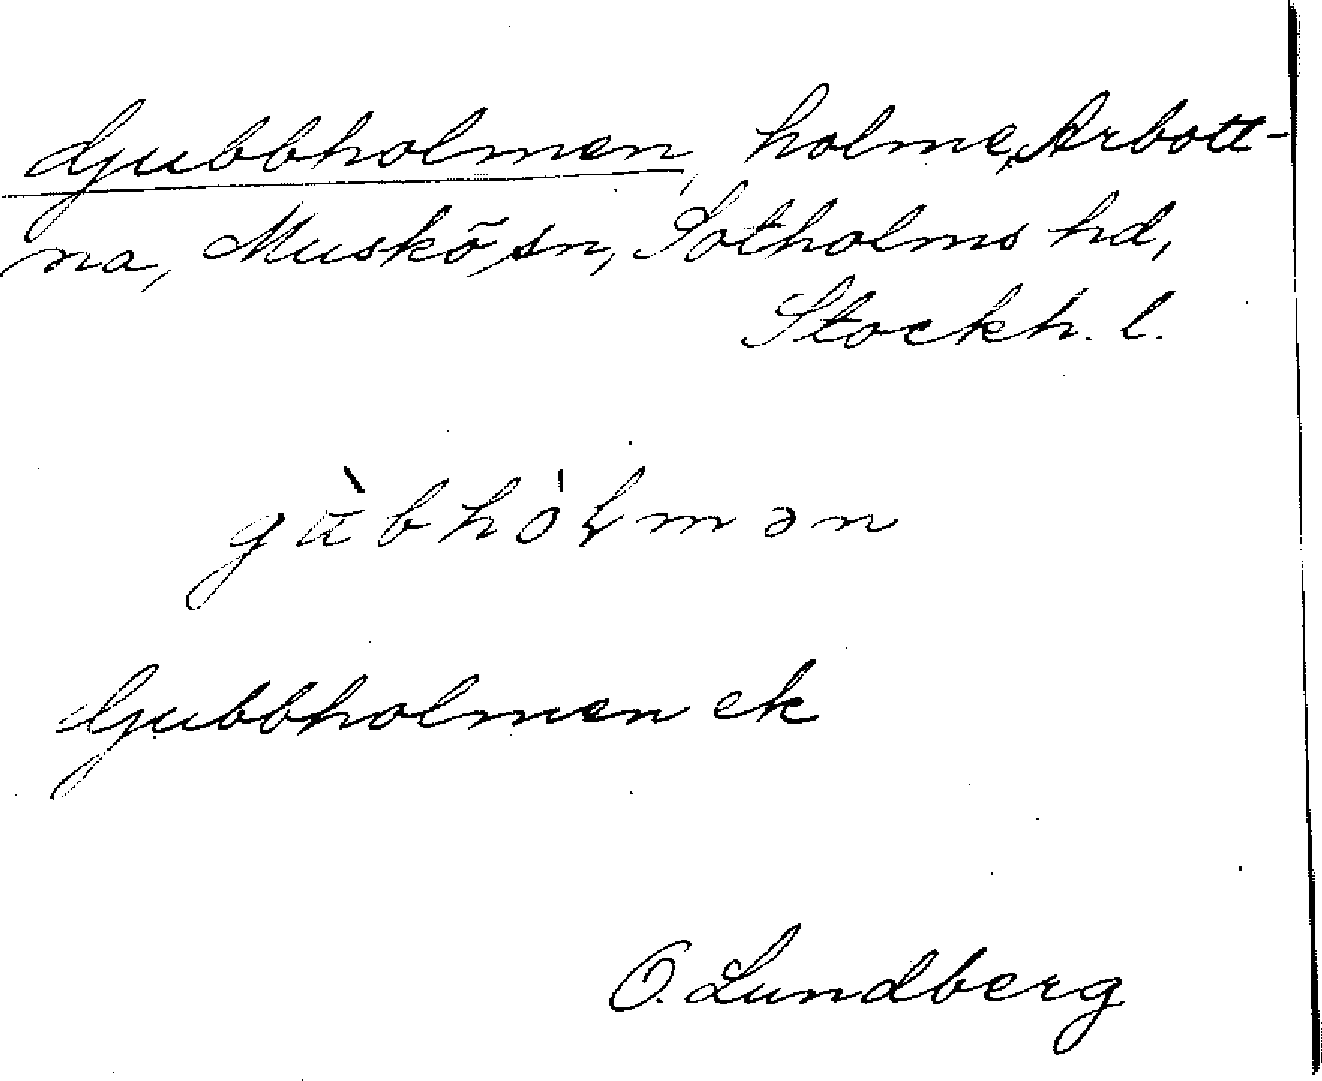 Gubbholmen, holme, Arbott-
na, Muskö sn, Sotholms hd,
Stockh. l.
gu̇̀bhȯ́lmən
Gubbholmen ek
O. Lundberg